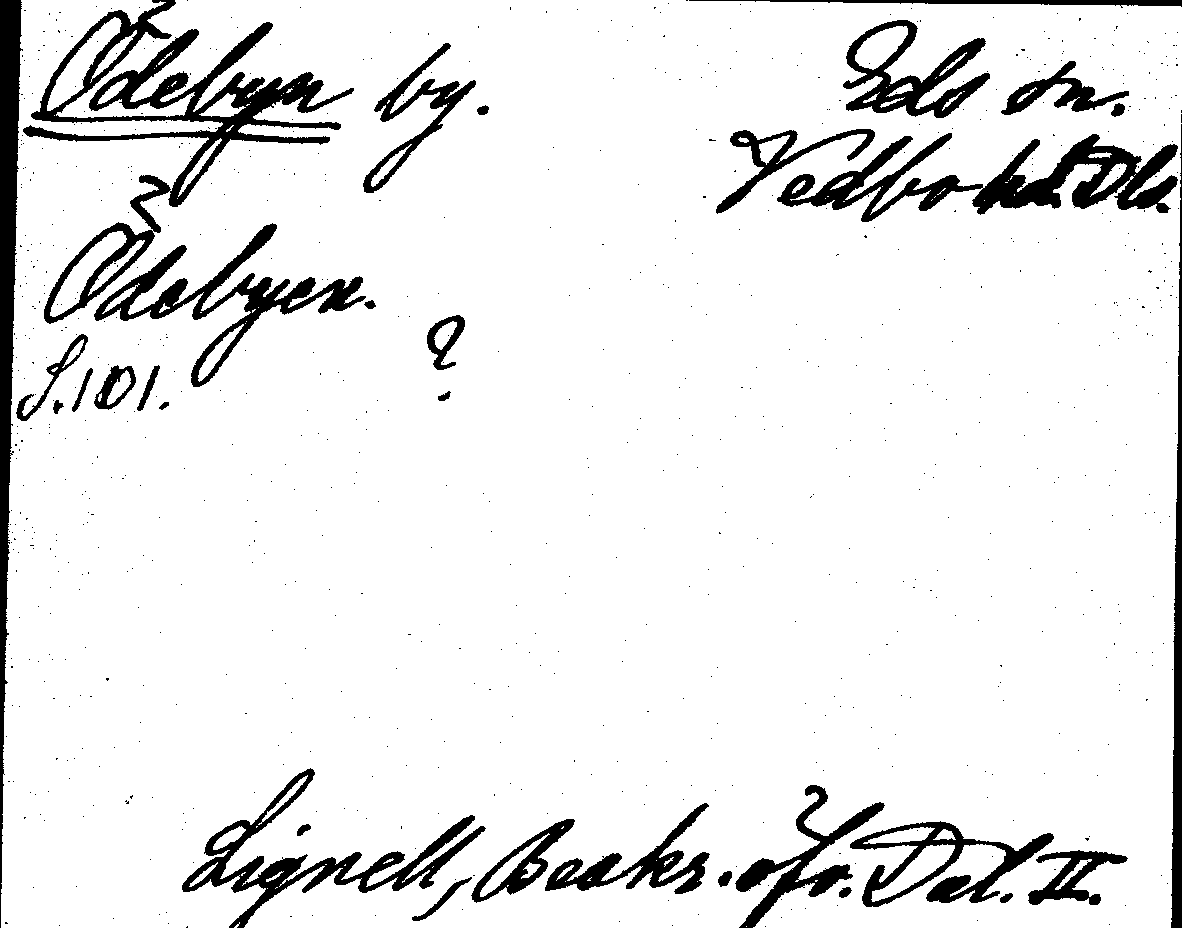 Ödebyn by. Eds sn.
Vedbo hd. Dls.
Ödebyen.
S. 101. ?
Lignell, Beskr. öfv. Dal. II.